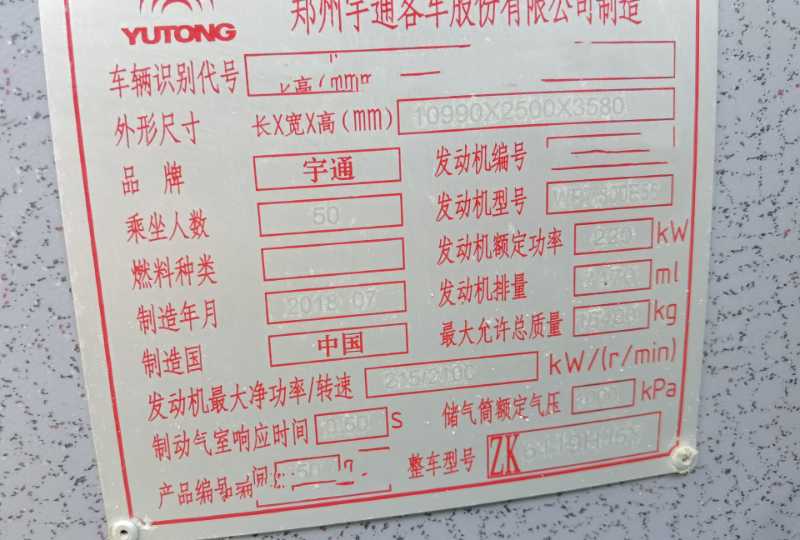 郑州宇通客车股份有限公司制造
YUTONG
车辆识别代号
外形尺寸 长X宽X高(mm) 10990X2500X3580
品 牌 宇通 发动机编号
乘坐人数 50 发动机型号
燃料种类 发动机额定功率 kW
制造年月 2018 07 发动机排量 ml
制造国 中国 最大允许总质量 kg
发动机最大净功率/转速 215/2300 kW/(r/min)
制动气室响应时间 0.60 s 储气筒额定气压 kPa
产品编号 整车型号 ZK